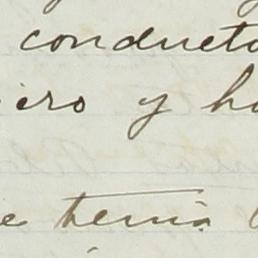 conducto
iero y ha
e tenía